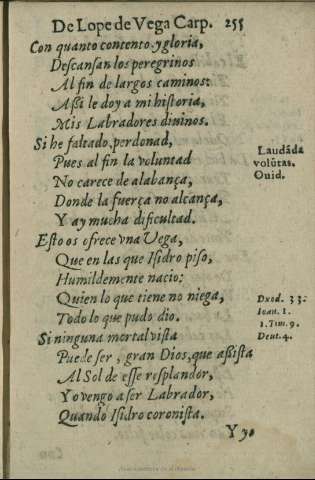 De Lope de Vega Carp. 255
Con quanto contento, y gloria,
Descansan los peregrinos
Al fin de largos caminos:
Assi le doy a mi historia,
Mis Labradores diuinos.
Si he faltado, perdonad,
Pues al fin la voluntad
No carece de alabança,
Donde la fuerça no alcança,
Y ay mucha dificultad.
Esto os ofrece vna Vega,
Que en las que Isidro piso,
Humildemente nacio:
Quien lo que tiene no niega,
Todo lo que pudo dio.
Si ninguna mortal vista
Puede ser, gran Dios, que assista
Al Sol de esse resplandor,
Yo vengo a ser Labrador,
Quando Isidro coronista.
Laudãda
volũtas.
Ouid.
Dxod. 33.
Ioan. 1.
1. Tim. 9.
Deut. 4.